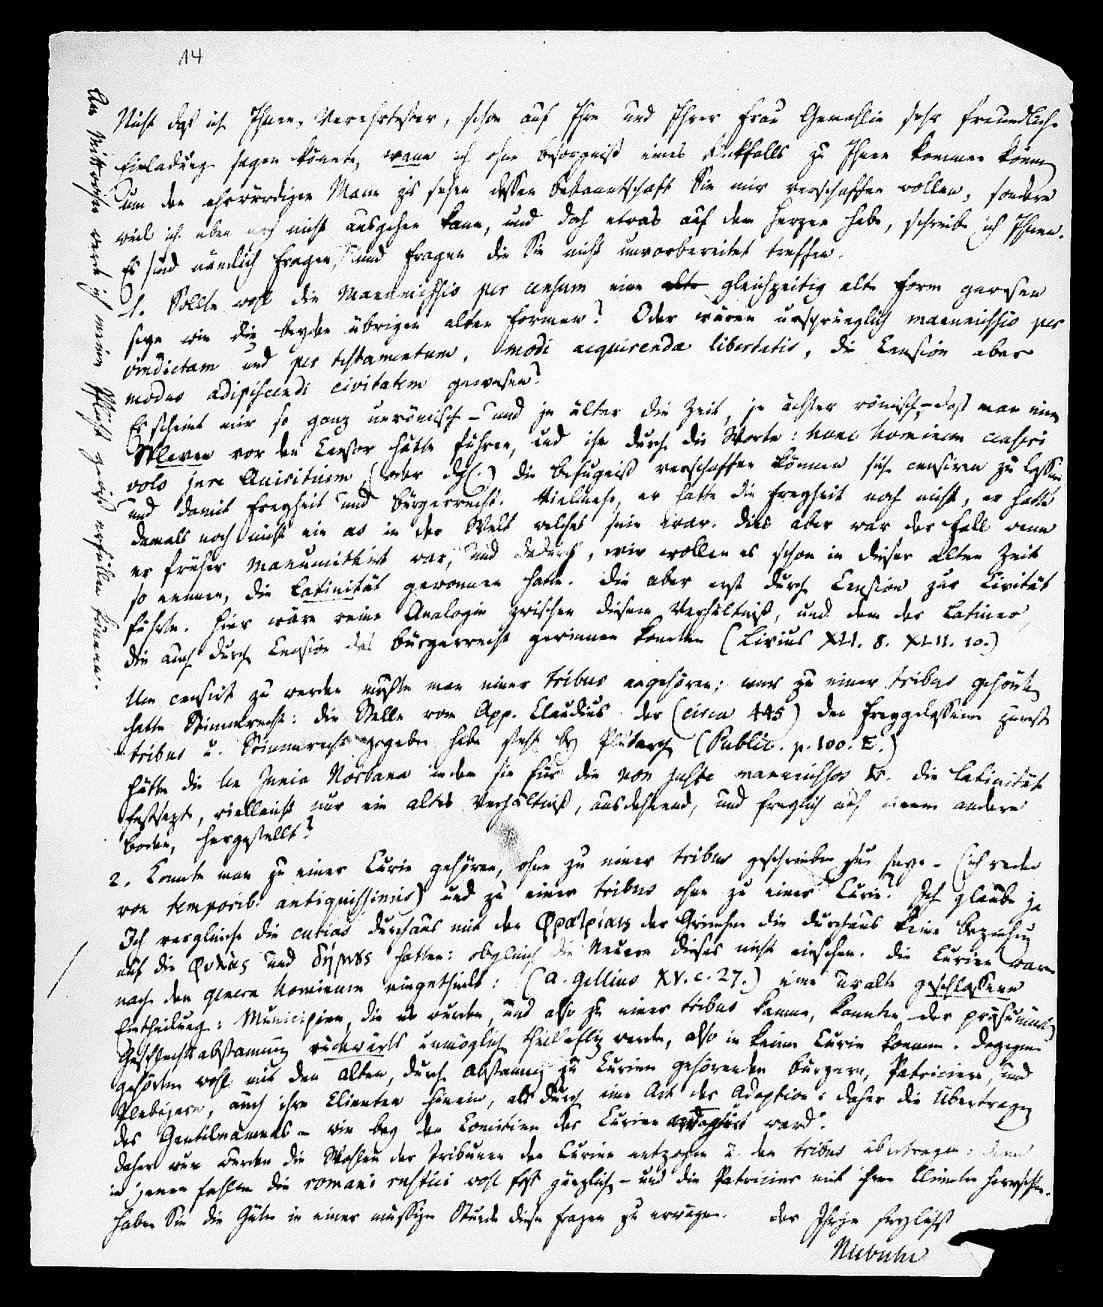 14
Nicht daß ich Ihnen, Verehrtester, schon auf Ihre und Ihrer Frau Gemahlin sehr freundliche
Einladung sagen könnte, wann ich ohne Besorgniß eines Rückfalls zu Ihnen kommen könne
um den ehrwürdigen Mann zu sehen dessen Bekanntschaft Sie mir verschaffen wollen, sondern
weil ich eben noch nicht ausgehen kann, und doch etwas auf dem Herzen habe, schreibe ich Ihnen.
Es sind nämlich Fragen, und Fragen die Sie nicht unvorbereitet treffen.
1. Sollte wohl die Manumissio per censum eine alte gleichzeitig alte Form gewesen
seyn wie die beyden übrigen alten Formen? Oder wären ursprünglich manumissio per
vindictam und per testamentum, modi acquirendae libertatis, die Cension aber
modus adipiscendi civitatem gewesen?
Es scheint mir so ganz unrömisch – und je älter die Zeit, je ächter römisch – daß man einen
Sklaven vor den Censor hätte führen, und ihn durch die Worte: hunc hominem censeri
volo jure Quiritium (oder dgl.) die Befugniß verschaffen können sich censiren zu lassen
und damit Freyheit und Bürgerrecht. Vielmehr, er hatte die Freyheit noch nicht, er hatte
damals noch nicht ein as in der Welt welches sein war. Dies aber war der Fall wenn
er früher manumittirt war, und dadurch, wir wollen es schon in dieser alten Zeit
so nennen, die Latinität gewonnen hatte. Die aber erst durch Census zur Civität
führte. Hier wäre reine Analogie zwischen diesem Verhältniß, und dem der Latiner,
die auch durch Census das Bürgerrecht gewinnen konnten (Livius XLI. 8. XLII. 10.)
Um censirt zu werden mußte man einer tribus angehören; wer zu einer tribus gehörte
hatte Stimmrecht: die Stelle von App. Claudius der (circa 445) den Freygelassenen zuerst
tribus u. Stimmrecht gegeben habe steht bey Plutarch (Public. p. 100. E.)
Hätte die lex Junia Norbana indem sie für die non juste manumissos die Latinität
festsezte, vielleicht nur ein altes Verhältniß, ausdehnend, und freylich auf einem andern
Boden, hergestellt?
2. Konnte man zu einer Curie gehören, ohne zu einer tribus geschrieben zu seyn – (ich rede
von temporib. antiquissimis) und zu einer tribus ohne zu einer Curie? Ich glaube ja
Ich vergleiche die curias durchaus mit den Φρατρίαις der Griechen die durchaus keine Beziehung
auf die Φυλὰς und δήμους hatten: obgleich die Neuern dieses nicht einsehen. Die Curien waren
nach den genera hominum eingetheilt: (A. Gellius XV. c. 27.) eine uralte geschlossene
Eintheilung: Municipien, die es wurden, und also zu einer tribus kamen, konnten der präsumirten
Geschlechtsabstammung rückwärts unmöglich theilhaftig werden, also in keine Curie kommen. Dagegen
gehörten wohl mit den alten, durch Abstammung zu Curien gehörenden Bürgern, Patriciern, und
Plebejern, auch ihre Clienten hinein, als durch eine Art der Adoption: daher die Übertragung
des Gentilnamens – wie bey den Comitien der Curien adrogirt ward.
Daher nun werden die Wahlen der Tribunen den Curien entzogen u. den tribus übertragen: denn
in jenen fehlten die romani rustici wohl fast gänzlich – und die Patricier mit ihren Clienten herrschten.
Haben Sie die Güte in einer müssigen Stunde diese Fragen zu erwägen. Der Ihrige herzlichst
Niebuhr
Am Mittwochen werde ich meine Pflicht gewiß erfüllen können.